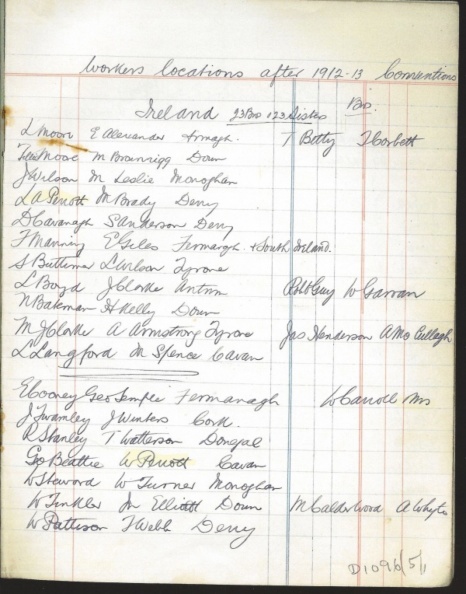 Workers locations after 1912-13 Conventions
Ireland 23 Bros 23 Sisters Bro.
L Moore E Alexander Armagh. T Betty T Corbett
M Brannigg Down
J Wilson M Leslie Monaghan
L A Perrott M Brady Derry
D Cavanagh S Anderson Derry
F Manning E Giles Fermangh. + South Ireland.
S Buttimer L Wilson Tyrone
L Boyd J Clarke Antrim Robt Guy W Garran
N Bateman H Kelly Down
M J Clarke A Armstrong Tyrone Jas Henderson A McCullagh
L Langford M Spence Cavan
E Cooney Geo Temple Fermanagh W Carroll Mrs
J Twamley J Winters Cork.
R Stanley T Watterson Donegal
Go Beattie W Perrott Cavan
W Steward W Turner Monaghan
W Tinkler Jn Elliott Down M Calderwood A Whyte
W Pattison T Webb Derry
D1096/5/1